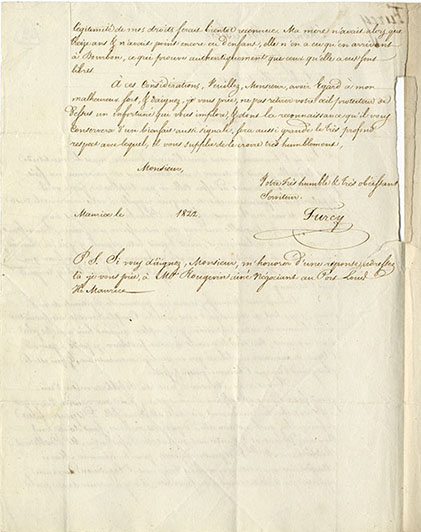 légitimité de mes droits serait bientôt reconnue. Ma mère n'avait alors que
treize ans & n'avait point encore eu d'enfans, elle n'en a eu qu'en arrivant
à Bourbon, ce qui prouve authentiquement que ceux qu'elle a eus sont
libres.
À ces Considérations, Veuillez, Monsieur, avoir Egard à mon
malheureux sort, & daignez, je vous prie, ne pas retirer votre œil protecteur de
dessus un infortuné qui vous implore, & dont la reconnaissance qu'il vous
Conservera d'un bienfait aussi signalé, sera aussi grande & très profond
respect avec lequel, Il vous supplie de le croire très humblement,
Monsieur,
Votre très humble & très obéissant
Serviteur
Maurice le 1822
Furcy
P. S. Si vous daignez, Monsieur, m'honorer d'une réponse, adressez
la je vous prie, à Mr. Rougevin ainé Négociant au Port Louis
Ile Maurice
Furcy